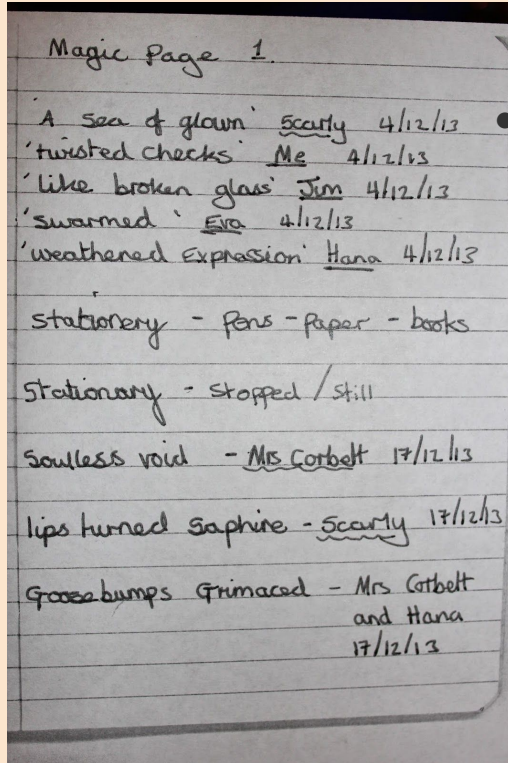 Magic Page 1.
'A sea of glown' Scarly 4/12/13
'twisted checks' Me 4/12/13
'like broken glass' Jim 4/12/13
'swarmed' Eva 4/12/13
'weathened Expression' Hana 4/12/13
Stationery - Pens - Paper - books
Stationary - Stopped / Still
Soulless void - Mrs Corbett 17/12/13
lips turned Saphire - Scarly 17/12/13
Goosebumps Grimaced - Mrs Corbett
and Hana
17/12/13